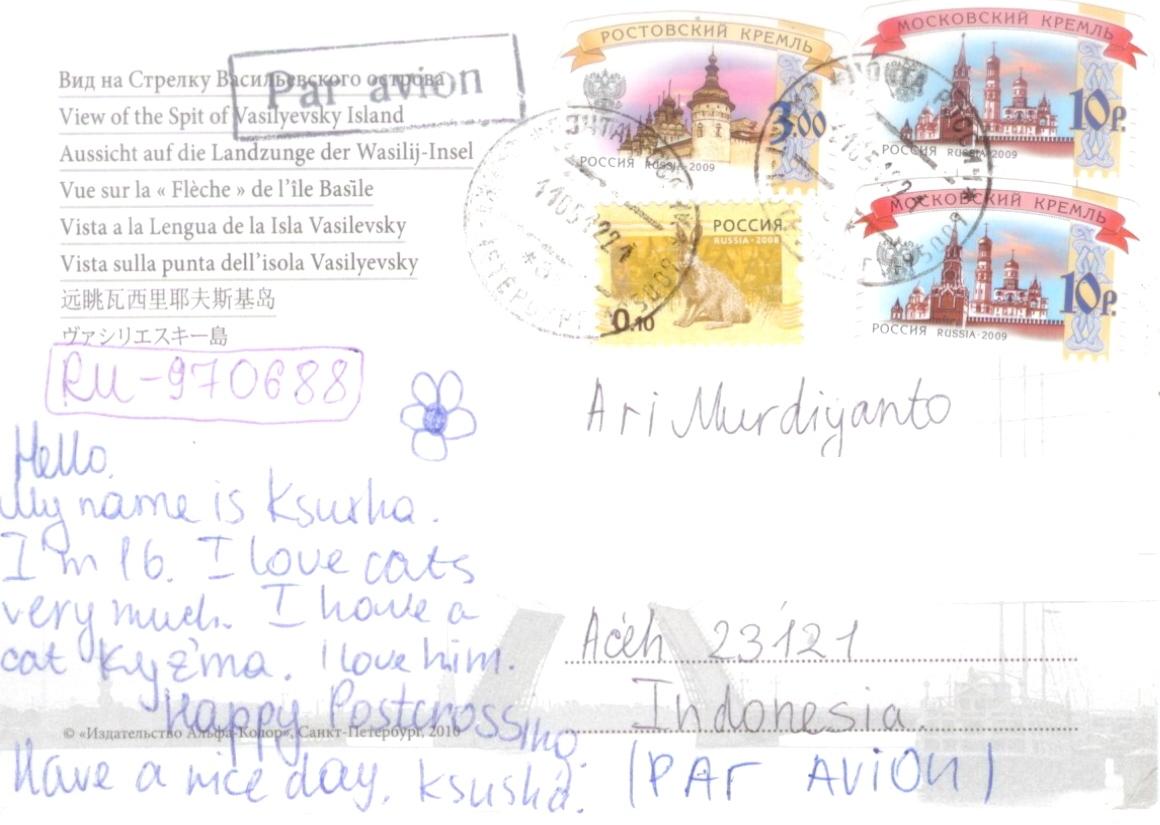 Вид на Стрелку Васильевского острова
Par avion
View of the Spit of Vasilyevsky Island
Aussicht auf die Landzunge der Wasilij-Insel
Vue sur la « Flèche » de l'île Basile
Vista a la Lengua de la Isla Vasilevsky
Vista sulla punta dell'isola Vasilyevsky
远眺瓦西里耶夫斯基岛
ヴァシリエスキー島
RU-970688
РОСТОВСКИЙ КРЕМЛЬ
3.00
РОССИЯ RUSSIA·2009
МОСКОВСКИЙ КРЕМЛЬ
10р.
РОССИЯ RUSSIA·2009
РОССИЯ
RUSSIA·2008
0.10
МОСКОВСКИЙ КРЕМЛЬ
10р.
РОССИЯ RUSSIA·2009
Hello.
My name is Ksusha.
I'm 16. I love cats
very much. I have a
cat Kyz'ma. I love him.
Happy Postcrossing.
Have a nice day. Ksusha.
© «Издательство Альфа-Колор», Санкт-Петербург, 2010
Ari Murdiyanto
Aceh 23121
Indonesia
(PAR AVION)